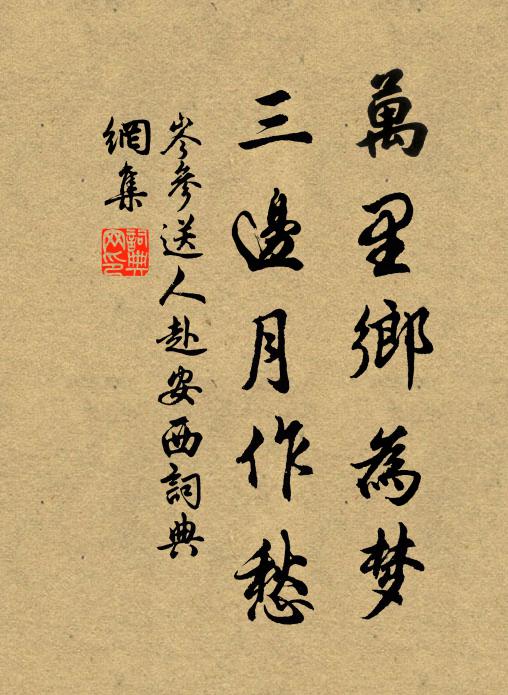 萬里鄉為梦
三邊月作愁
岑參送人赴安西詞典
網集
詞典網印